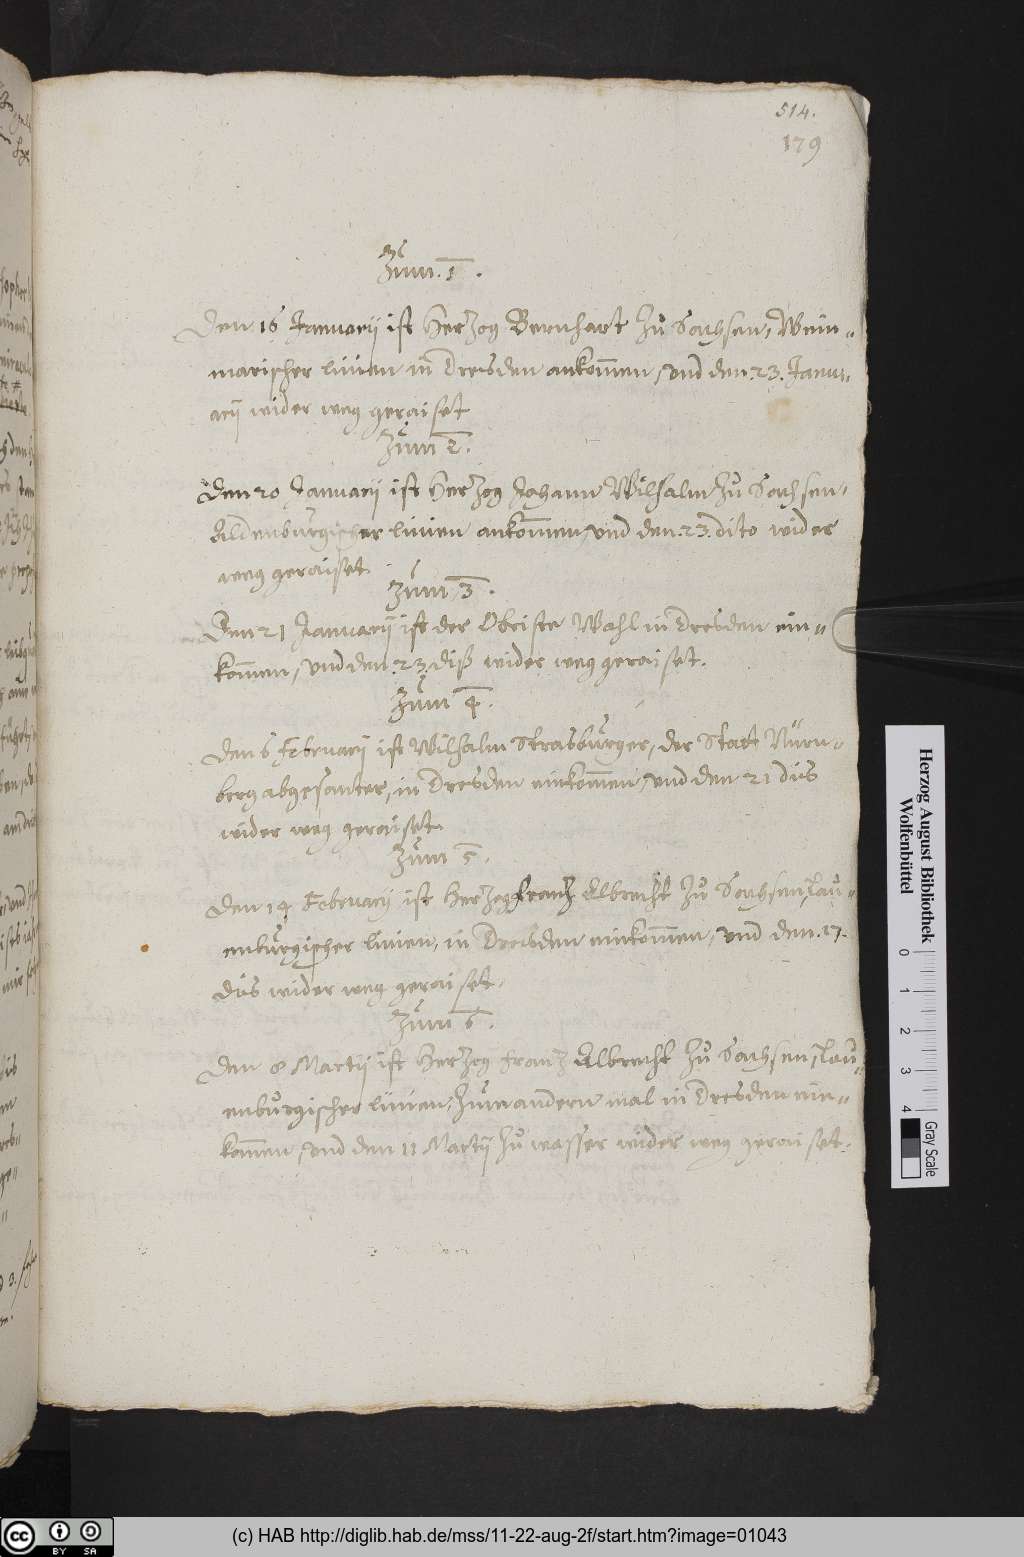 514.
179
Zum. 1.
Den 16 Januarij ist Herzog Bernhart zu Sachsen, Wein=
marischer linien in Dresden ankom̄en, vnd den. 23. Janu=
arij wider weg geraiset
Zum 2.
Den 20 Januarij ist Herzog Johann Wilhalm zu Sachsen,
Aldenburgischer linien ankom̄en, vnd den. 23. dito wider
weg geraiset
Zum 3.
Den 21 Januarij ist der Obriste Wahl in Dresden ein=
kom̄en, vnd den. 23 diß wider weg geraiset.
Zum 4.
Den 6 Februarij ist Wilhalm Strasburger, der Statt Nürn=
berg abgesanter, in Dresden einkom̄en, vnd den 21 dis
wider weg geraiset.
Zum 5.
Den 14 Februarij ist Herzog Franz Elbrecht zu Sachsen, Lau=
enburgischer linien, in Dresden einkom̄en, vnd den. 17.
dis wider weg geraiset.
Zum 6.
Den 8 Martij ist Herzog Franz Elbrecht zu Sachsen, Lau=
enburgischer linien, zum andern mal in Dresden ein=
kom̄en, vnd den 11 Martij zu wasser wider weg geraiset.
Herzog August Bibliothek
Wolfenbüttel
0 1 2 3 4
Gray Scale
cc BY SA
(c) HAB http://diglib.hab.de/mss/11-22-aug-2f/start.htm?image=01043